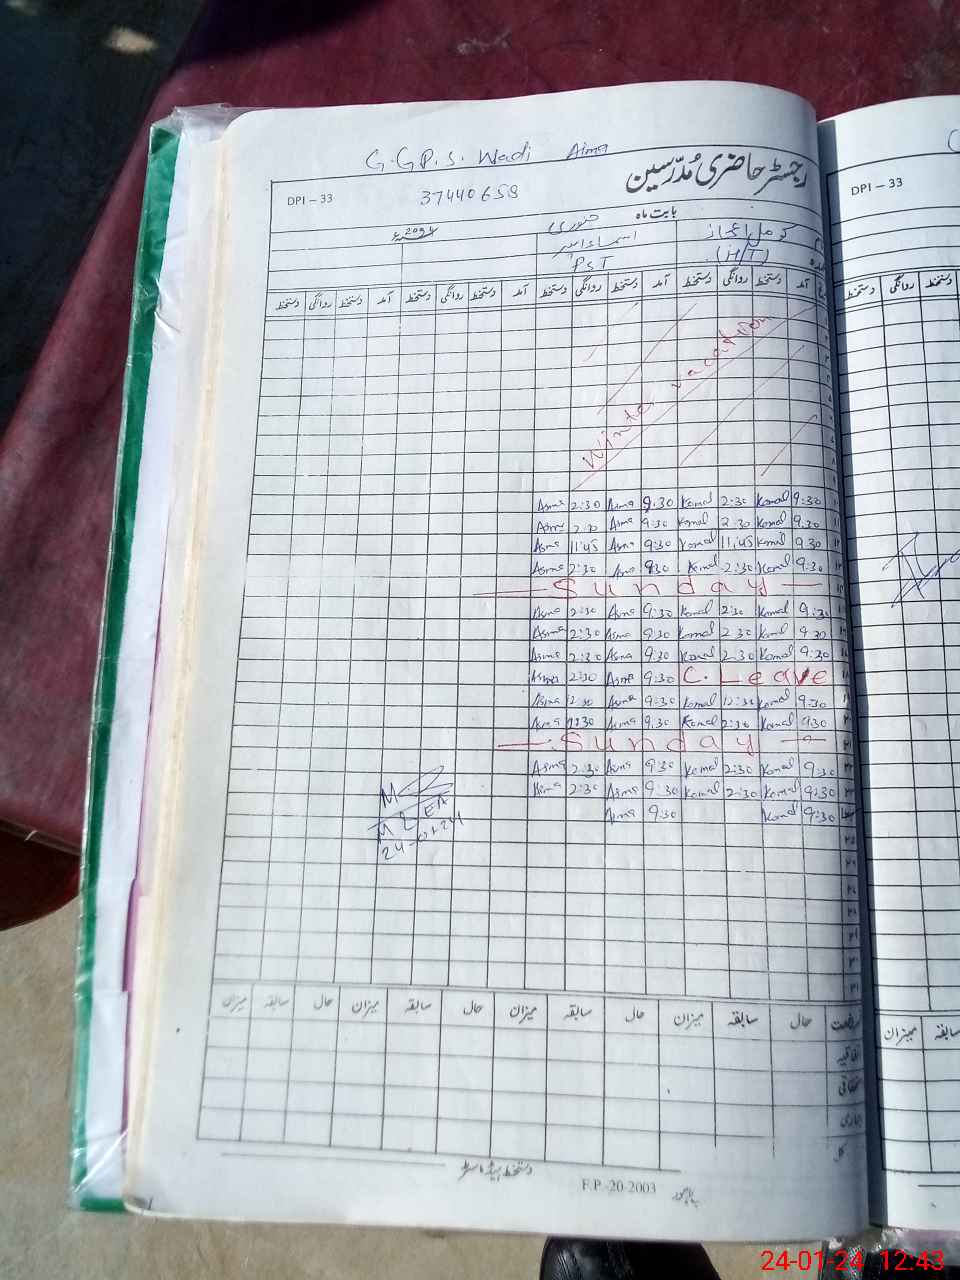 G.GP.S. Wadi Asma
DPI – 33
37440658
رجسٹر حاضری مُدرّسین
DPI – 33
بابت ماہ جنوری
کومل اعجاز
(H/T)
PST
آمد دستخط روانگی دستخط آمد دستخط روانگی دستخط آمد دستخط روانگی دستخط آمد دستخط روانگی دستخط
دستخط روانگی دستخط
Winter vacation
9:30 Komal 2:30 Komal 9:30 Asma 2:30 Asma
9:30 Komal 2:30 Komal 9:30 Asma 2:30 Asma
9:30 Komal 11:45 Komal 9:30 Asma 11:45 Asma
9:30 Komal 2:30 Komal 9:30 Asma 2:30 Asma
Sunday
9:30 Komal 2:30 Komal 9:30 Asma 2:30 Asma
9:30 Komal 2:30 Komal 9:30 Asma 2:30 Asma
9:30 Komal 2:30 Komal 9:30 Asma 2:30 Asma
C. Leave 9:30 Asma 2:30 Asma
9:30 Komal 12:30 Komal 9:30 Asma 12:30 Asma
9:30 Komal 2:30 Komal 9:30 Asma Asma
Sunday
9:30 Komal 2:30 Komal 9:30 Asma 2:30 Asma
9:30 Komal 2:30 Komal 9:30 Asma 2:30 Asma
9:30 Komal 9:30 Asma
MEA
24-01-24
حال سابقہ میزان حال سابقہ میزان حال سابقہ میزان حال سابقہ میزان
میزان سابقہ
اتفاقیہ
بیماری
کل
دستخط ہیڈ ماسٹر
F.P.-20-2003
24-01-24 12:43